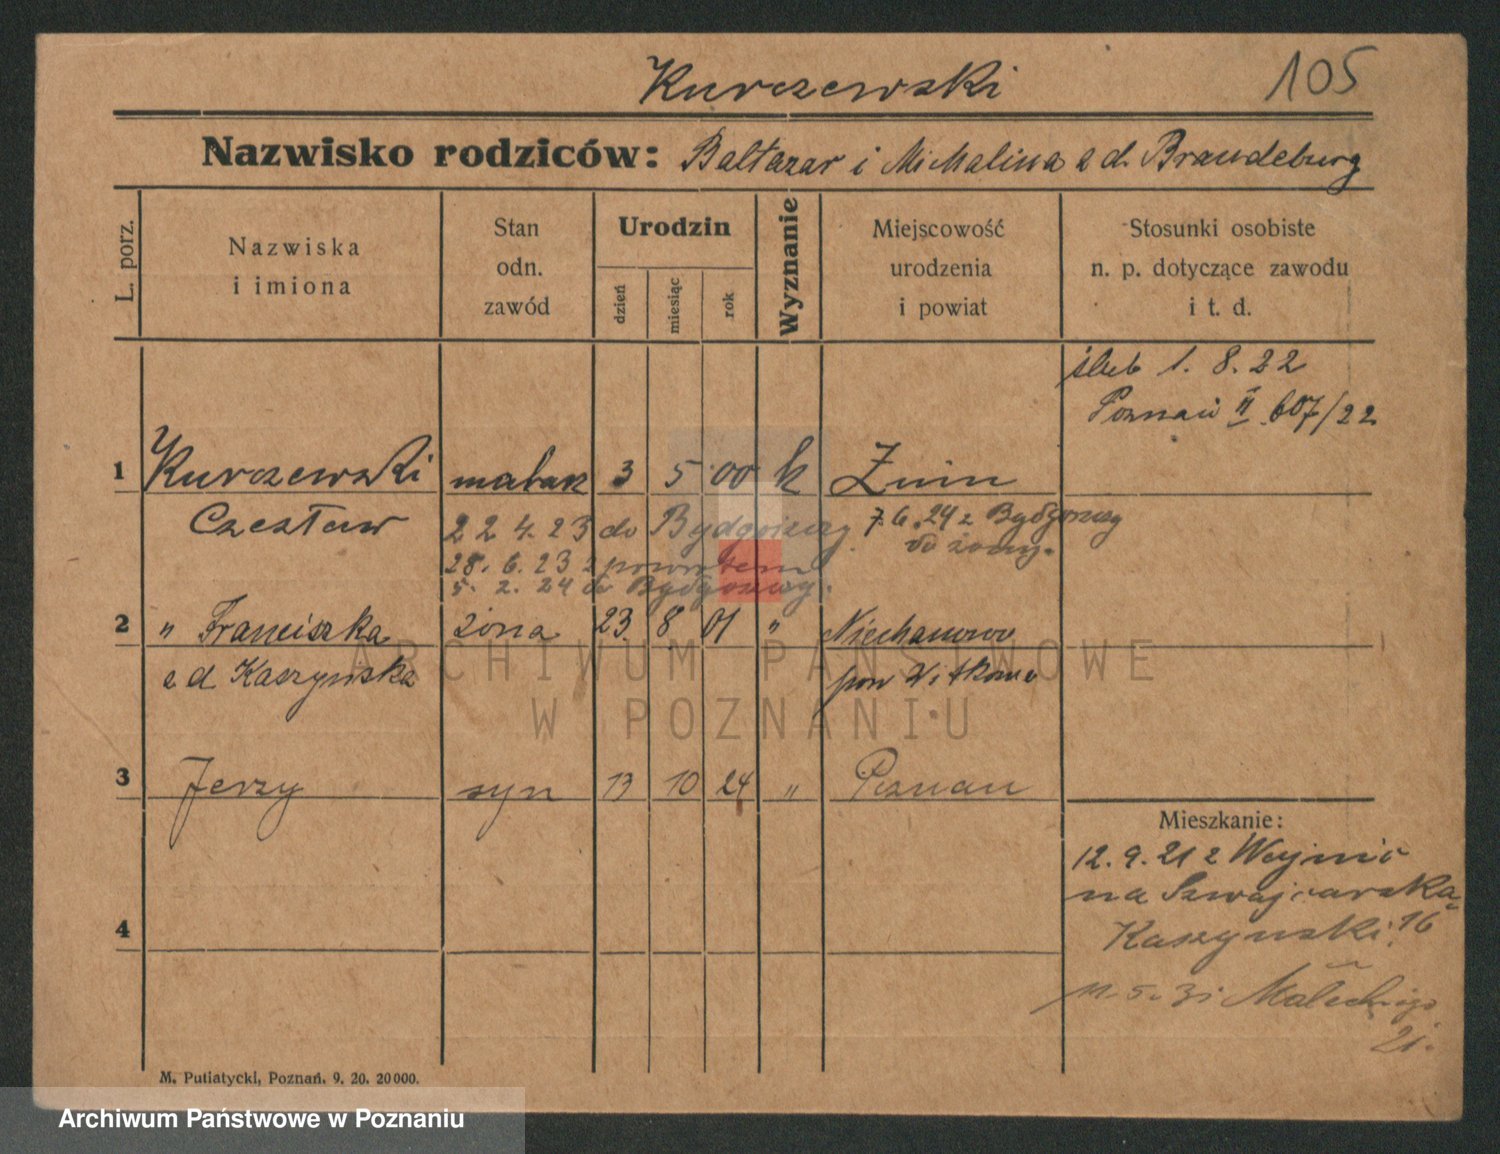 Kurczewski 105
Nazwisko rodziców: Baltazar i Michalina z d. Brandeburg
L. porz.
Nazwiska
i imiona
Stan
odn.
zawód
Urodzin
dzień
miesiąc
rok
Wyznanie
Miejscowość
urodzenia
i powiat
Stosunki osobiste
n. p. dotyczące zawodu
i t. d.
ślub 1. 8. 22
Poznań II 607/22
1 Kurczewski 3 5 00 k Żnin
Czesław 22 4. 23 do Bydgoszczy 7. 6. 24 z Bydgoszczy
do żony.
28. 6. 23 z powrotem
5. 2. 24 do Bydgoszczy.
2 " Franciszka żona 23 8 01 " Niechanowo
z d Kaszyńska pow Witkowo
ARCHIWUM PAŃSTWOWE
W POZNANIU
3 Jerzy syn 13 10 24 " Poznań
4
Mieszkanie:
12. 9. 21 z
na Szwajcarska
Kaszyński 16
11. 5. 31 Małeckiego
21.
M. Putiatycki, Poznań. 9. 20. 20000.
Archiwum Państwowe w Poznaniu